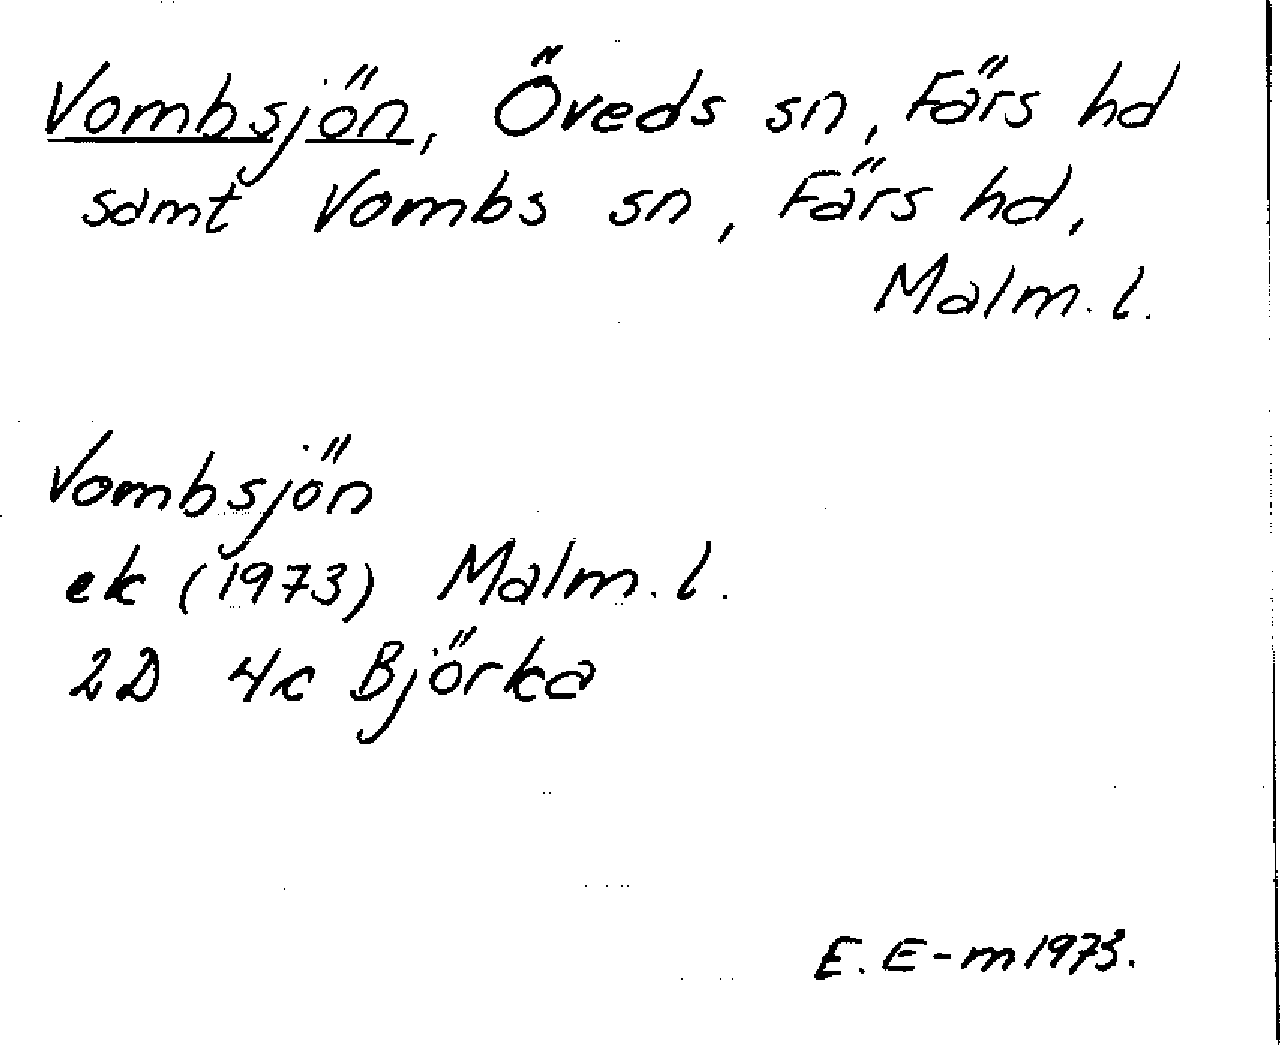 Vombsjön, Öveds sn, Färs hd
samt Vombs sn, Färs hd,
Malm. l.
Vombsjön
ek (1973) Malm. l.
2D 4c Björka
E. E-m 1973.